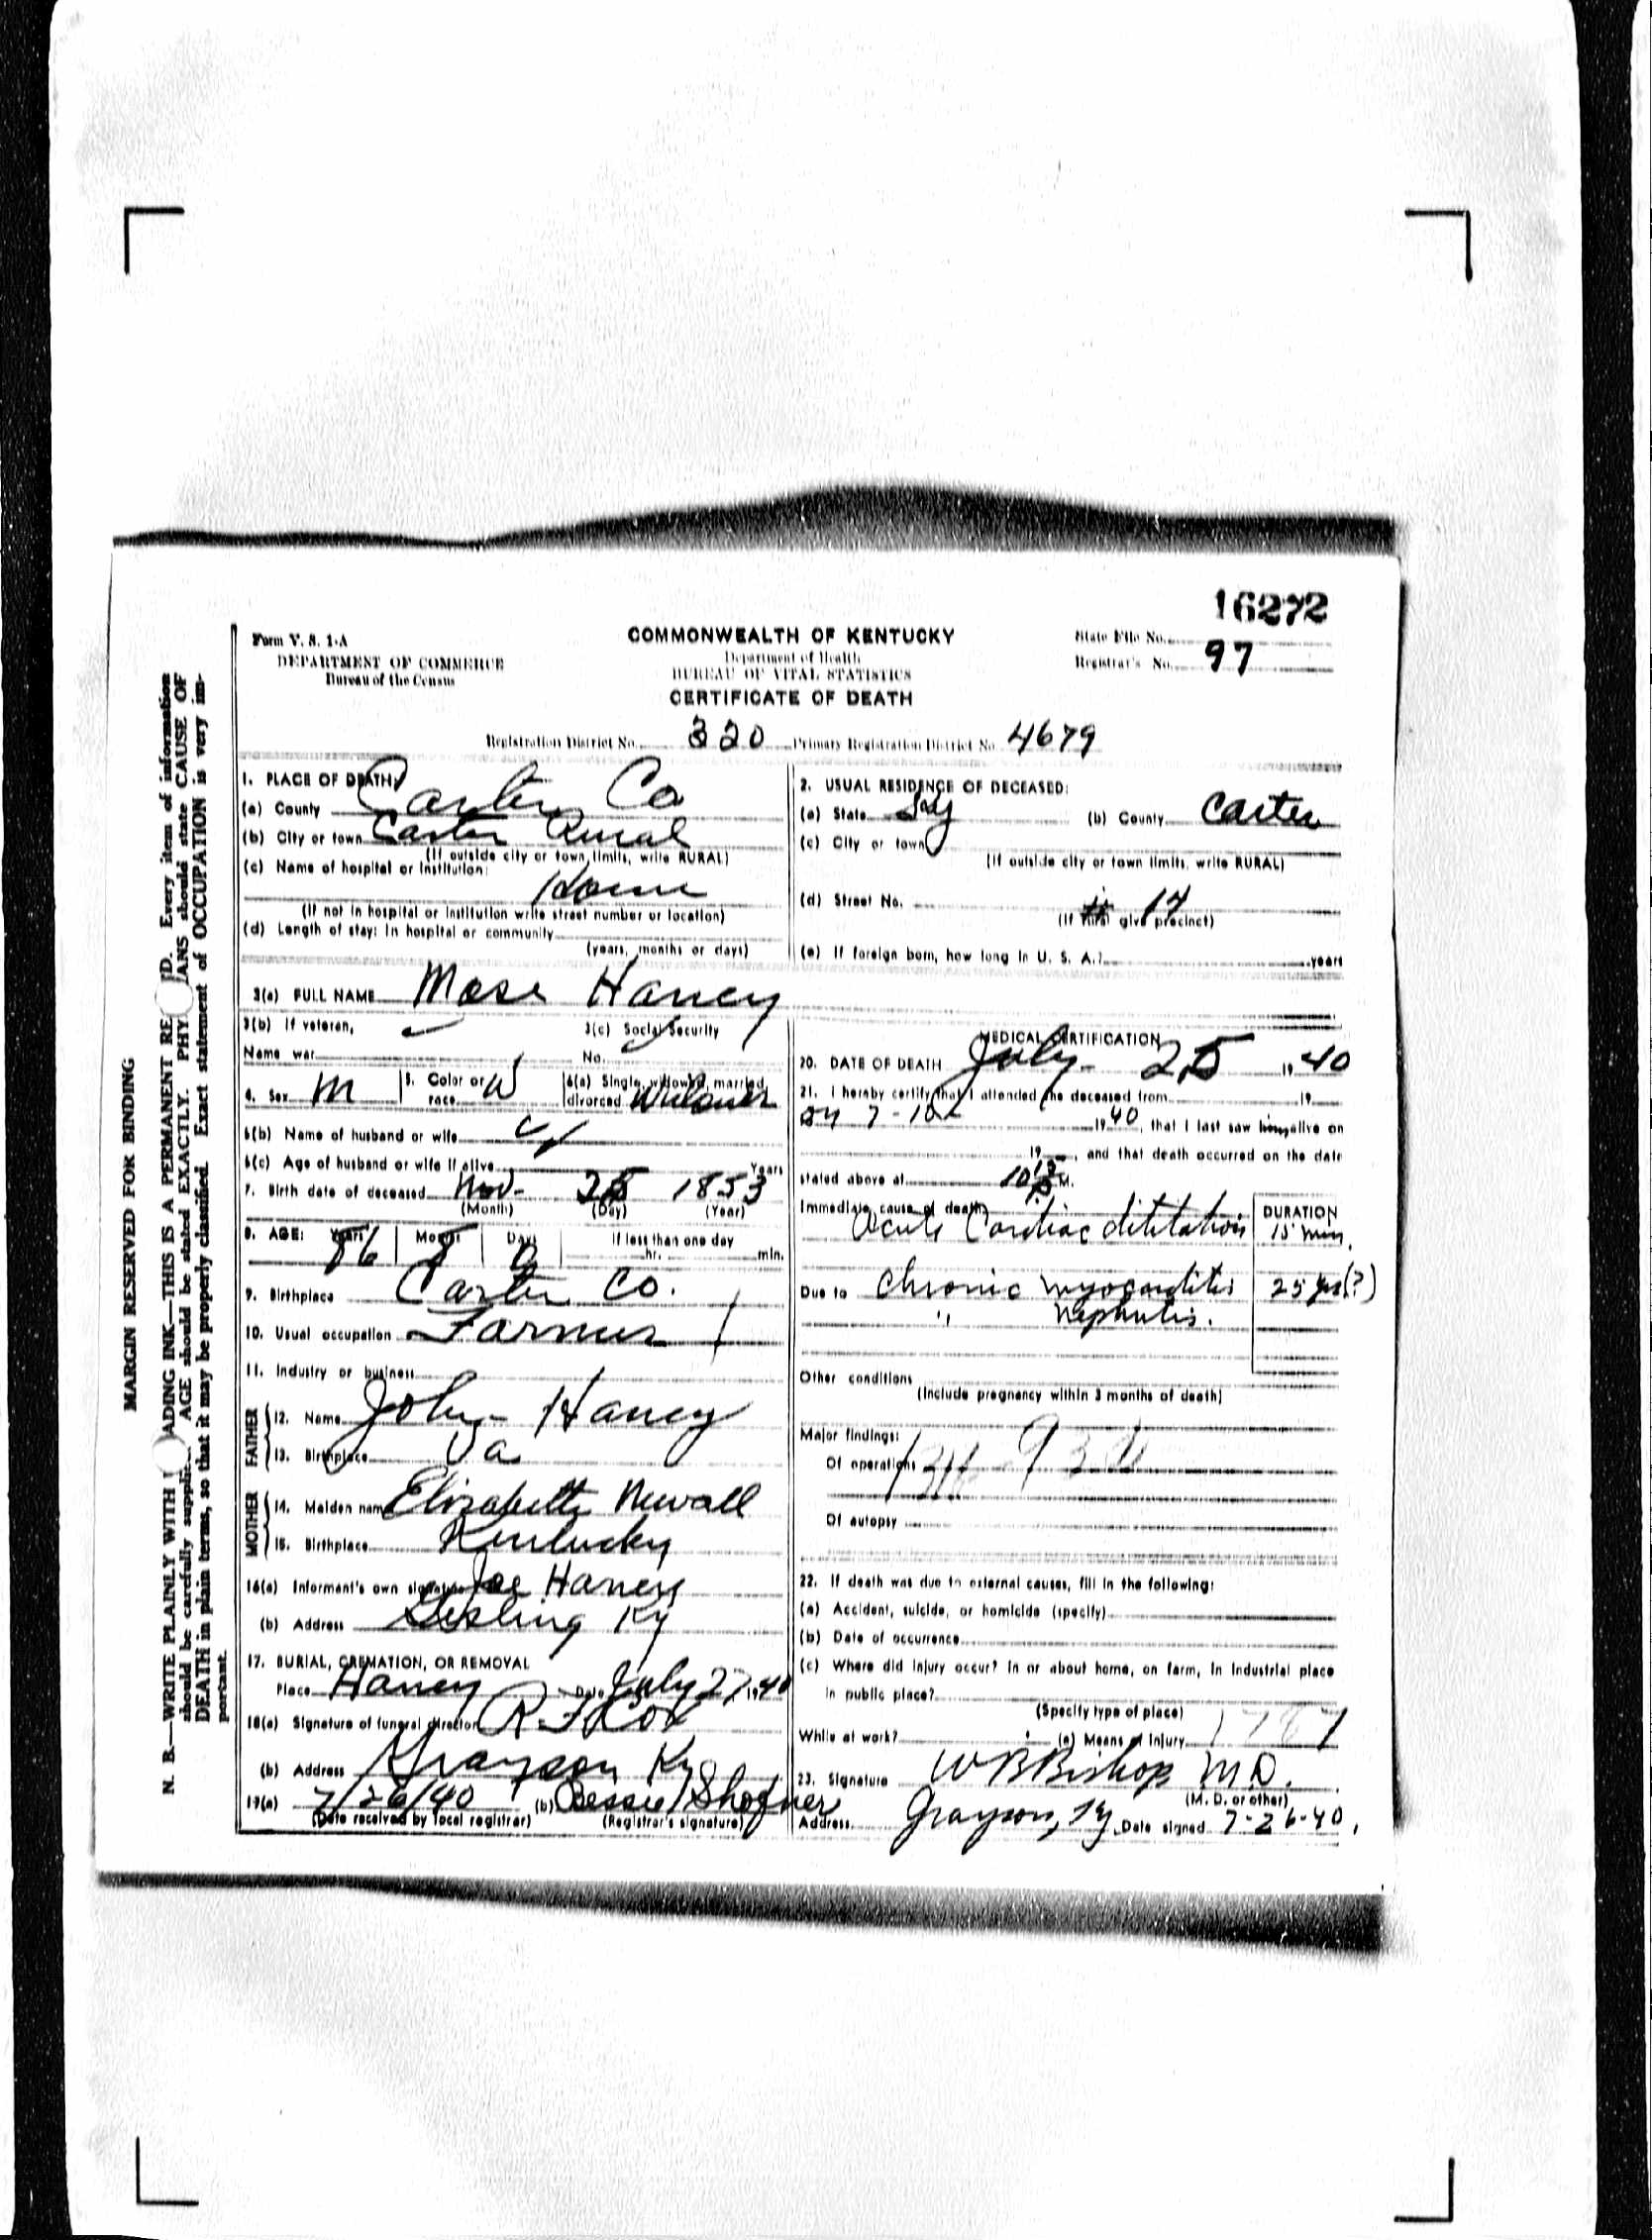 16272
Form V. S. 1-A
DEPARTMENT OF COMMERCE
Bureau of the Census
COMMONWEALTH OF KENTUCKY
Department of Health
BUREAU OF VITAL STATISTICS
CERTIFICATE OF DEATH
State File No.
Registrar's No. 97
Registration District No. 320 Primary Registration District No. 4679
1. PLACE OF DEATH:
(a) County Carter Co
(b) City or town Carter Rural
(If outside city or town limits, write RURAL)
(c) Name of hospital or institution:
Home
(If not in hospital or institution write street number or location)
(d) Length of stay: In hospital or community
(years, months or days)
2. USUAL RESIDENCE OF DECEASED:
(a) State Ky (b) County Carter
(c) City or town
(If outside city or town limits, write RURAL)
(d) Street No. # 14
(If rural give precinct)
(e) If foreign born, how long in U. S. A.? years
3(a) FULL NAME Mose Haney
3(b) If veteran, 3(c) Social Security
Name war No.
4. Sex M 5. Color or race W 6(a) Single, widowed, married, divorced Widower
6(b) Name of husband or wife
6(c) Age of husband or wife if alive Years
7. Birth date of deceased Nov- 25 1853
(Month) (Day) (Year)
8. AGE: Years 86 Months 8 Days 0 If less than one day
hr. min.
9. Birthplace Carter Co.
10. Usual occupation Farmer
11. Industry or business
FATHER
12. Name John Haney
13. Birthplace Va
MOTHER
14. Maiden name Elizabeth Newall
15. Birthplace Kentucky
16(a) Informant's own signature Joe Haney
(b) Address Gesling Ky
17. BURIAL, CREMATION, OR REMOVAL
Place Haney Date July 27 1940
18(a) Signature of funeral director R. F Cox
(b) Address Grayson Ky
19(a) 7/26/40 (b) Bessie Shofner
(Date received by local registrar) (Registrar's signature)
MEDICAL CERTIFICATION
20. DATE OF DEATH July- 25 19 40
21. I hereby certify that I attended the deceased from 19
on 7-10 1940, that I last saw him alive on
19, and that death occurred on the date
stated above at 10 15 P M.
Immediate cause of death
Acute Cardiac dilitation
DURATION
15 min.
Due to Chronic myocarditis 25 yrs(?)
" Nephritis.
Other conditions
(Include pregnancy within 3 months of death)
Major findings:
Of operations
Of autopsy
22. If death was due to external causes, fill in the following:
(a) Accident, suicide, or homicide (specify)
(b) Date of occurrence
(c) Where did injury occur? In or about home, on farm, in industrial place
in public place?
(Specify type of place)
While at work? (e) Means of injury
23. Signature W B Bishop M.D.
(M. D. or other)
Address Grayson, Ky. Date signed 7-26-40.
MARGIN RESERVED FOR BINDING
N. B.—WRITE PLAINLY WITH ADING INK—THIS IS A PERMANENT RE D. Every item of information
should be carefully supplie AGE should be stated EXACTLY. PHY IANS should state CAUSE OF
DEATH in plain terms, so that it may be properly classified. Exact statement of OCCUPATION is very im-
portant.